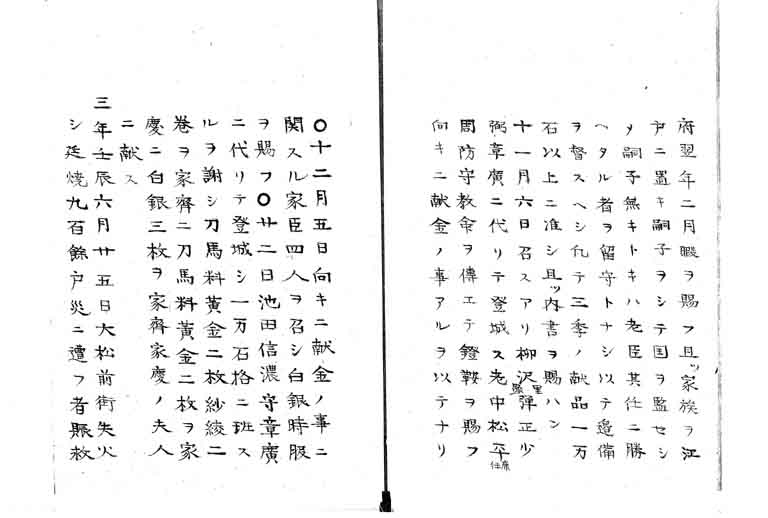 府翌年二月暇ヲ賜フ且ッ家族ヲ江
戸ニ置キ嗣子ヲシテ国ヲ監セシ
メ嗣子無キトキハ老臣其任ニ勝
ヘタル者ヲ留守トナシ以テ邊備
ヲ督スヘシ化テ三季ノ献品一万
石以上ニ准シ且ッ内書ヲ賜ハン
十一月六日召スアリ柳沢弾正少
弼章廣ニ代リテ登城ス老中松平
周防守教命ヲ傳エテ鐙鞍ヲ賜フ
向キニ献金ノ事アルヲ以テナリ
里監
康任
〇十二月五日向キニ献金ノ事ニ
関スル家臣四人ヲ召シ白銀時服
ヲ賜フ〇廿二日池田信濃守章廣
ニ代リテ登城シ一万石格ニ班ス
ルヲ謝シ刀馬料黄金二枚紗綾二
巻ヲ家齊ニ刀馬料黄金二枚ヲ家
慶ニ白銀三枚ヲ家齊家慶ノ夫人
ニ献ス
三年壬辰六月廿五日大松前街失火
シ延焼九百餘戸災ニ遭フ者賑救